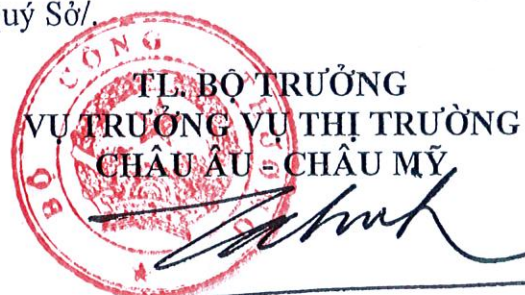 uý Sở/.
TL. BỘ TRƯỞNG
VỤ TRƯỞNG VỤ THỊ TRƯỜNG
CHÂU ÂU - CHÂU MỸ
BỘ CÔNG